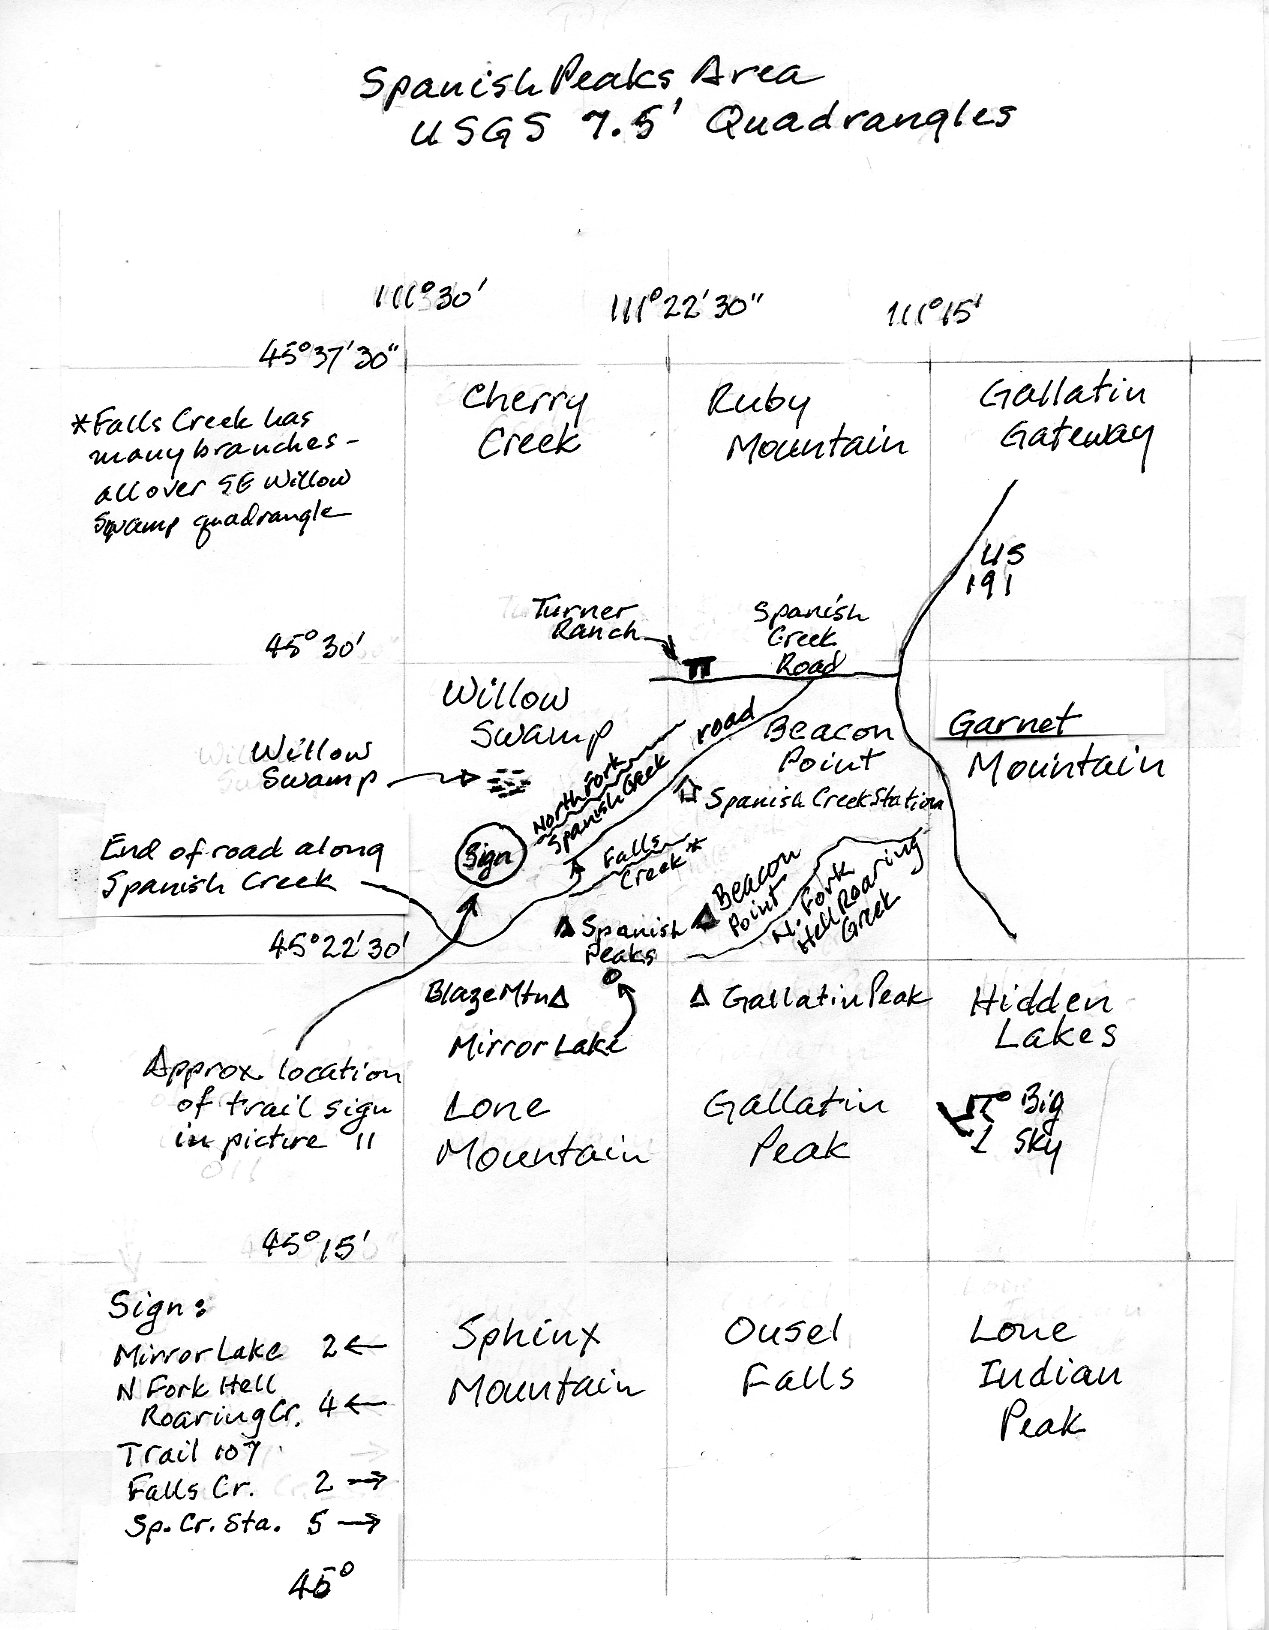 Spanish Peaks Area
USGS 7.5' Quadrangles
111°30'
111°22'30"
111°15'
45°37'30"
*Falls Creek has
many branches -
all over SE Willow
Swamp quadrangle
Cherry
Creek
Ruby
Mountain
Gallatin
Gateway
US
191
Turner
Ranch
Spanish
Creek
Road
45°30'
Willow
Swamp
road
Beacon
Point
Garnet
Mountain
Willow
Swamp
North Fork
Spanish Creek
Spanish Creek Station
Sign
Falls
Creek*
End of road along
Spanish Creek
Beacon
Point
N. Fork
Hell Roaring
Creek
Spanish
Peaks
45°22'30'
Blaze Mtn
Gallatin Peak
Hidden
Lakes
Mirror Lake
Approx. location
of trail sign
in picture 11
Lone
Mountain
Gallatin
Peak
Big
Sky
45°15'
Sign:
Mirror Lake 2←
N Fork Hell
Roaring Cr. 4←
Trail 107
Falls Cr. 2→
Sp. Cr. Sta. 5→
Sphinx
Mountain
Ousel
Falls
Lone
Indian
Peak
45°